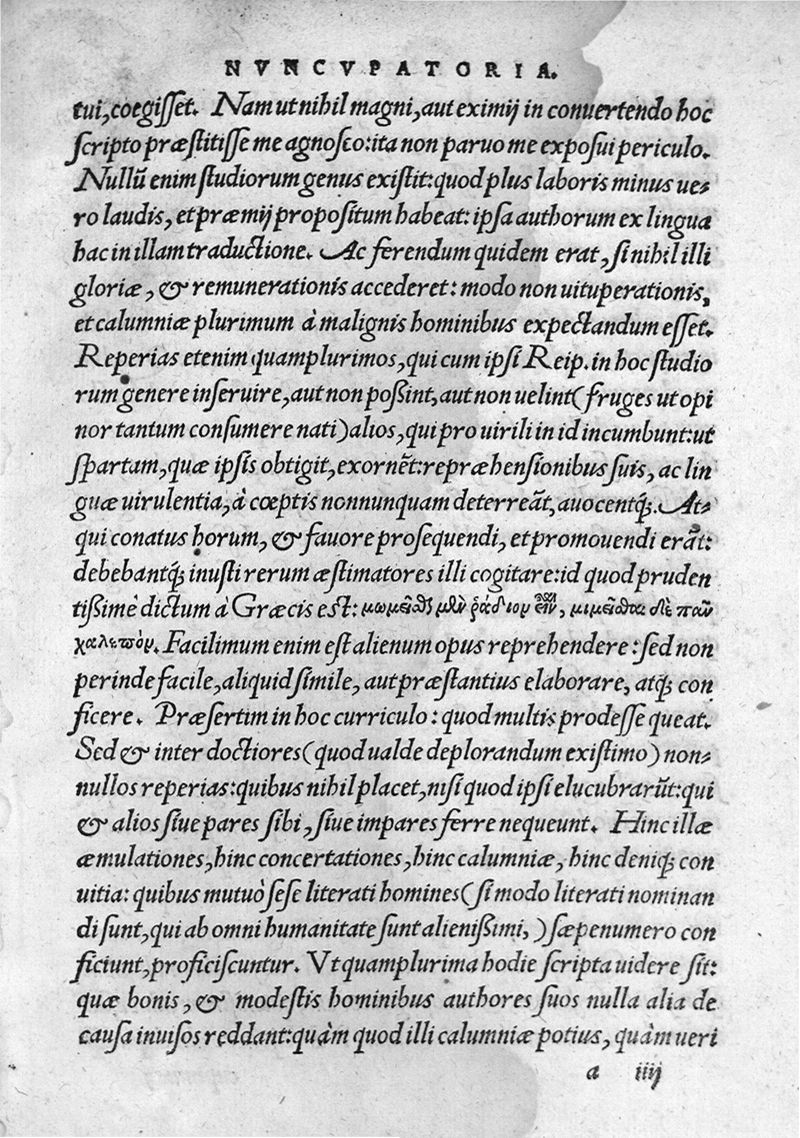 NVNCVPATORIA.
tui, coegiſſet. Nam ut nihil magni, aut eximij in conuertendo hoc
ſcripto præſtitiſſe me agnoſco: ita non paruo me expoſui periculo.
Nullũ enim ſtudiorum genus exiſtit: quod plus laboris minus ue-
ro laudis, et præmij propoſitum habeat: ipſa authorum ex lingua
hac in illam traductione. Ac ferendum quidem erat, ſi nihil illi
gloriæ, & remunerationis accederet: modo non uituperationis,
et calumniæ plurimum à malignis hominibus expectandum eſſet.
Reperias etenim quamplurimos, qui cum ipſi Reip. in hoc ſtudio
rum genere inſeruire, aut non poßint, aut non uelint (fruges ut opi
nor tantum conſumere nati) alios, qui pro uirili in id incumbunt: ut
ſpartam, quæ ipſis obtigit, exornẽt: repræhenſionibus ſuis, ac lin
guæ uirulentia, à cœptis nonnunquam deterreãt, auocentq́;. At-
qui conatus horum, & fauore proſequendi, et promouendi erãt:
debebantq́; inuſti rerum æſtimatores illi cogitare: id quod pruden
tißimè dictum à Græcis eſt: μωμεῖσθαι μὲν ῥάδιον εἶναι, μιμεῖσθαι δὲ πᾶν
χαλεπὸν. Facilimum enim eſt alienum opus reprehendere: ſed non
perinde facile, aliquid ſimile, aut præſtantius elaborare, atq́; con
ficere. Præſertim in hoc curriculo: quod multis prodeſſe queat.
Sed & inter doctiores (quod ualde deplorandum exiſtimo) non-
nullos reperias: quibus nihil placet, niſi quod ipſi elucubrarũt: qui
& alios ſiue pares ſibi, ſiue impares ferre nequeunt. Hinc illæ
æmulationes, hinc concertationes, hinc calumniæ, hinc deniq́; con
uitia: quibus mutuò ſeſe literati homines (ſi modo literati nominan
di ſunt, qui ab omni humanitate ſunt alienißimi,) ſæpenumero con
ficiunt, proficiſcuntur. Vt quamplurima hodie ſcripta uidere ſit:
quæ bonis, & modeſtis hominibus authores ſuos nulla alia de
cauſa inuiſos reddant: quàm quod illi calumniæ potius, quàm ueri
a iiij